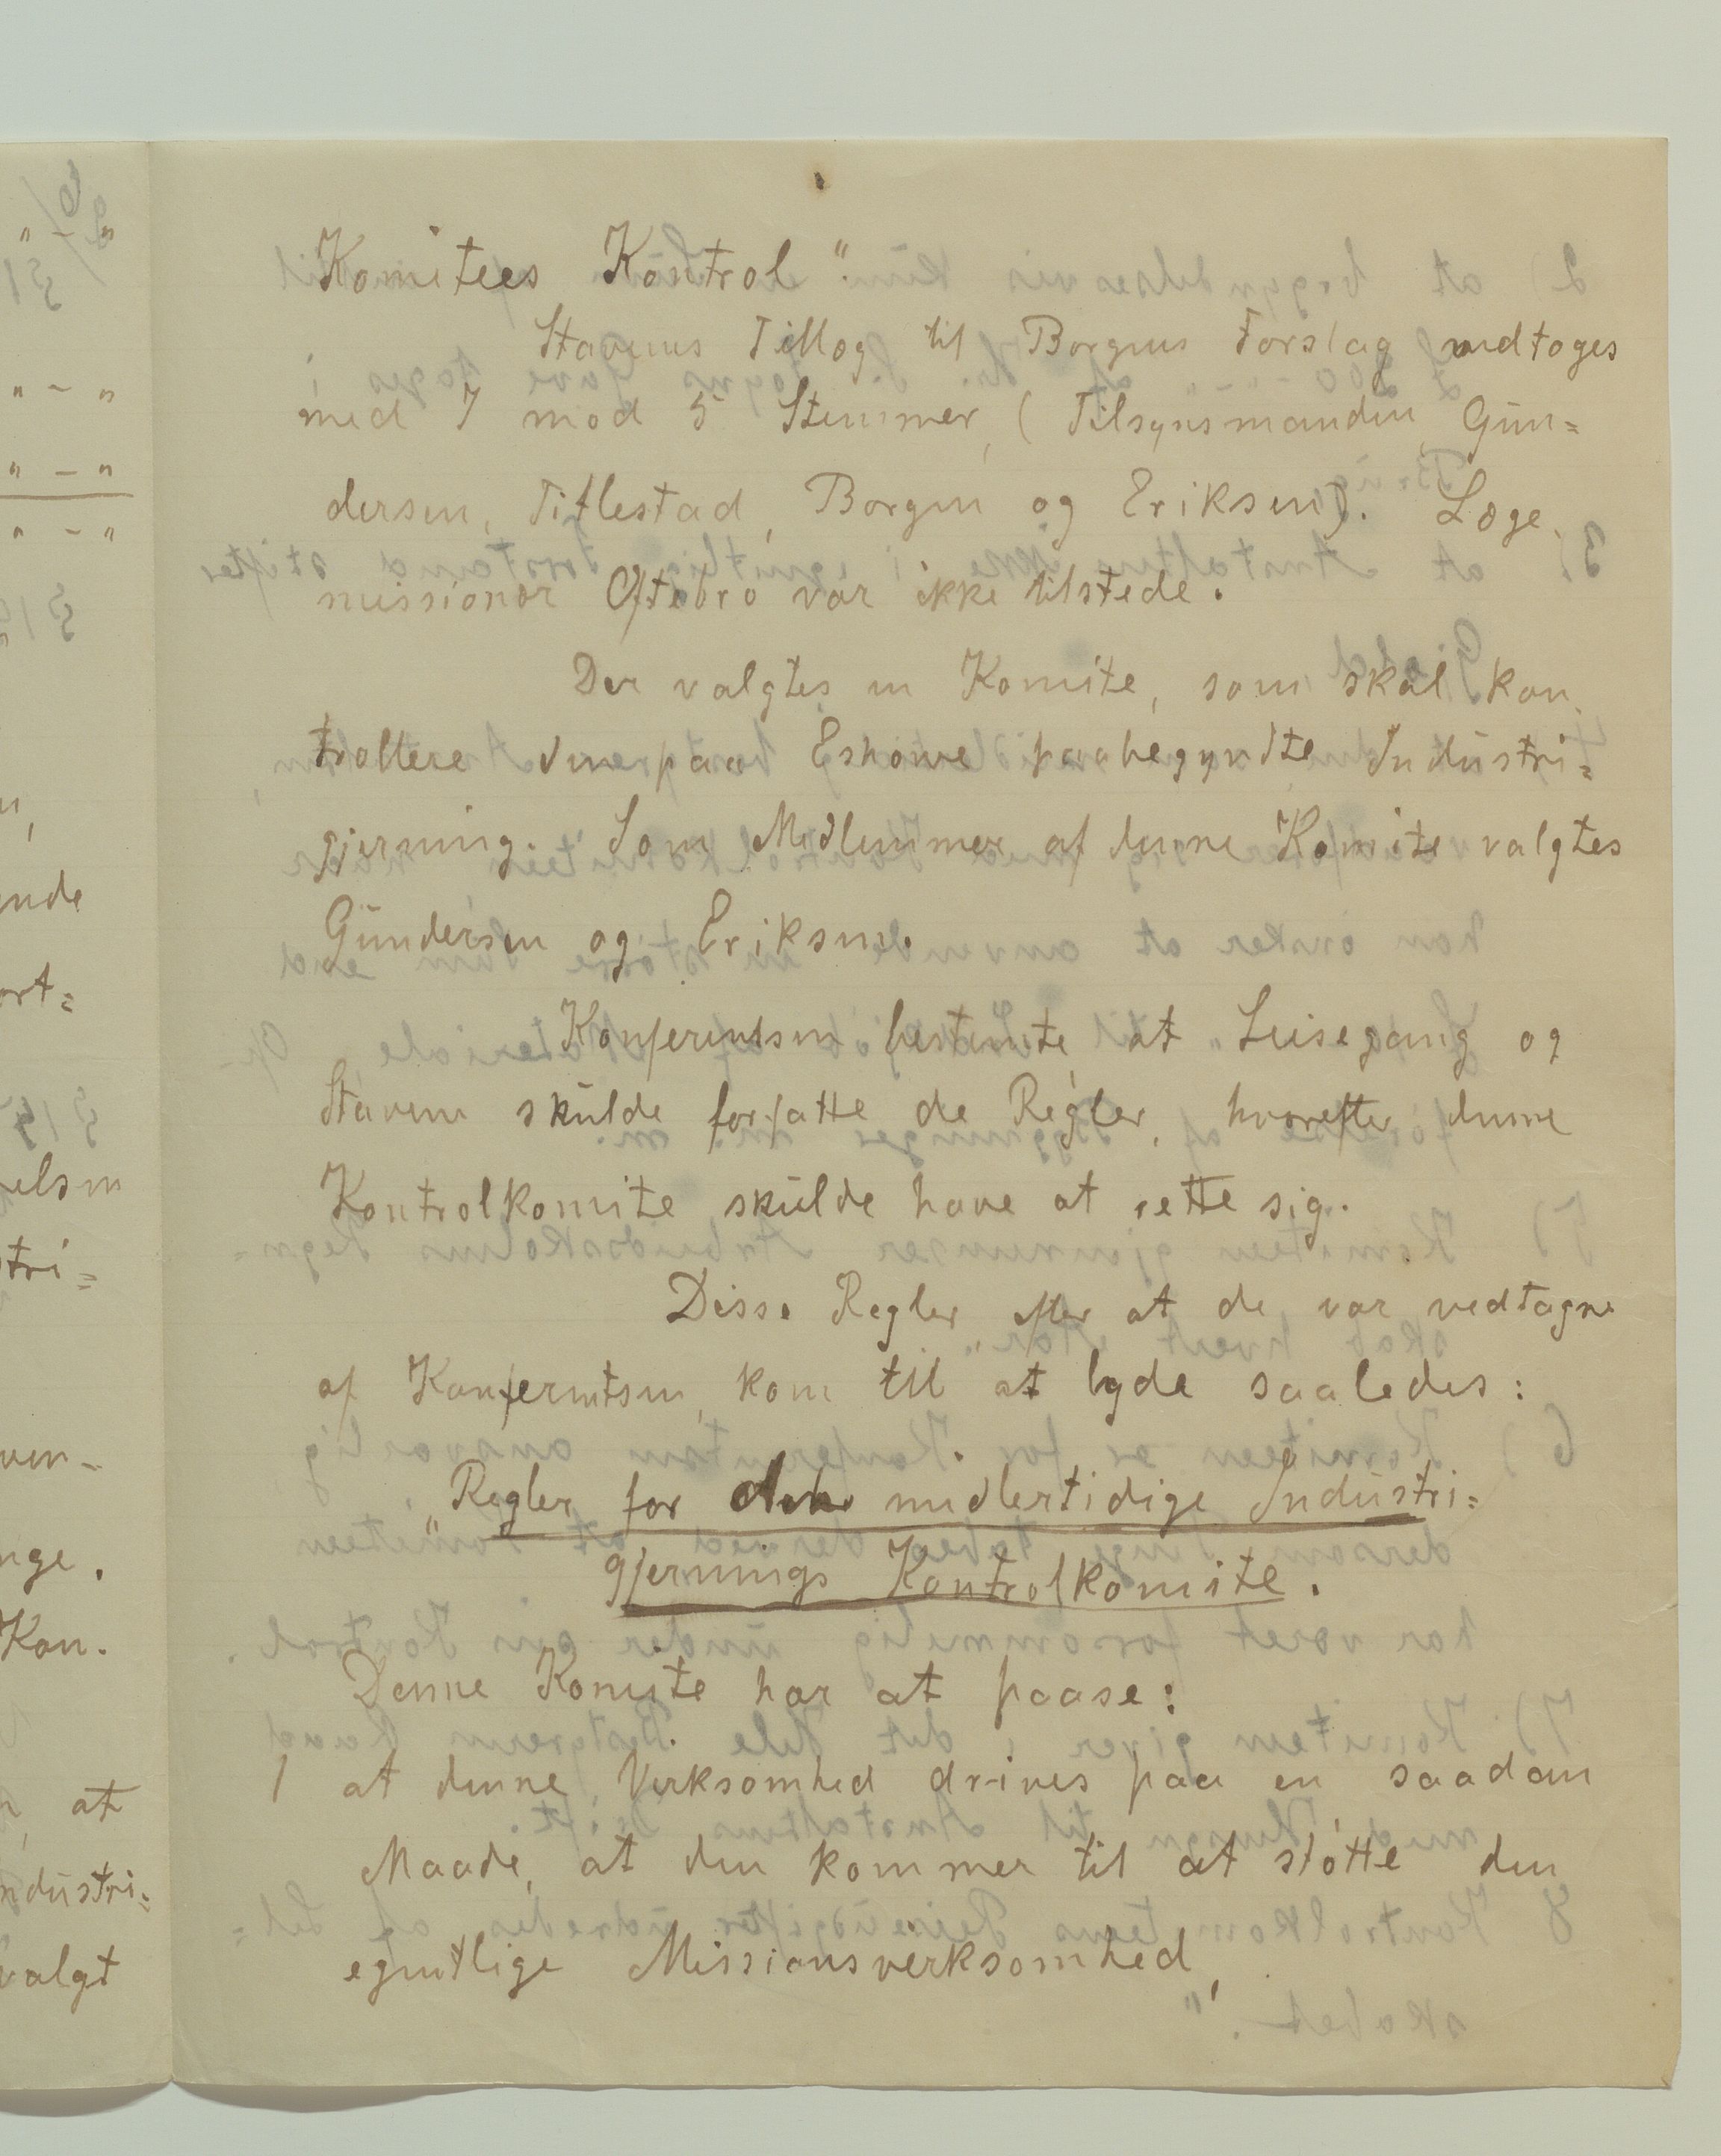 Komitees Kontrol".
Stavems Tillæg til Borgens Forslag vedtoges
med 7 mod 5 Stemmer, (Tilsynsmanden, Gun=
dersen, Titlestad, Borgen og Eriksen). Læge
missionær Oftebro var ikke tilstede.
Der valgtes en Komite, som skal kon
trollere den paa Eshowe paabegyndte Industri=
gjerning. Som Medlemmer af denne Komite valgtes
Gundersen og Eriksen.
Konferentsen bestemte, at Leisegang og
Stavem skulde forfatte de Regler, hvorefter denne
Kontrolkomite skulde have at rette sig.
Disse Regler efter at de var vedtagne
af Konferentsen, kom til at lyde saaledes:
"Regler for den midlertidige Industri=
gjernings Kontrolkomite.
Denne Komite har at paase:
1 at denne Verksomhed drives paa en saadan
Maade, at den kommer til at støtte den
egentlige Missionsverksomhed,
" - "
" - "
" - "
" - "
ende
ort=
elsen
stri=
ven-
nge.
Kon.
at
ndustri=
valgt